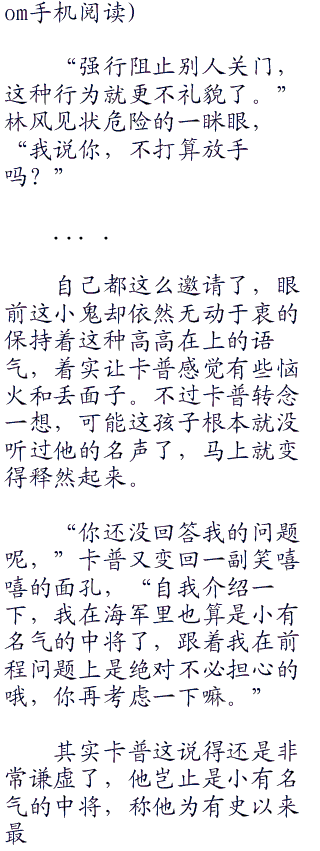 om手机阅读)
“强行阻止别人关门，
这种行为就更不礼貌了。”
林风见状危险的一眯眼，
“我说你，不打算放手
吗？”
... .
自己都这么邀请了，眼
前这小鬼却依然无动于衷的
保持着这种高高在上的语
气，着实让卡普感觉有些恼
火和丢面子。不过卡普转念
一想，可能这孩子根本就没
听过他的名声了，马上就变
得释然起来。
“你还没回答我的问题
呢，”卡普又变回一副笑嘻
嘻的面孔，“自我介绍一
下，我在海军里也算是小有
名气的中将了，跟着我在前
程问题上是绝对不必担心的
哦，你再考虑一下嘛。”
其实卡普这说得还是非
常谦虚了，他岂止是小有名
气的中将，称他为有史以来
最